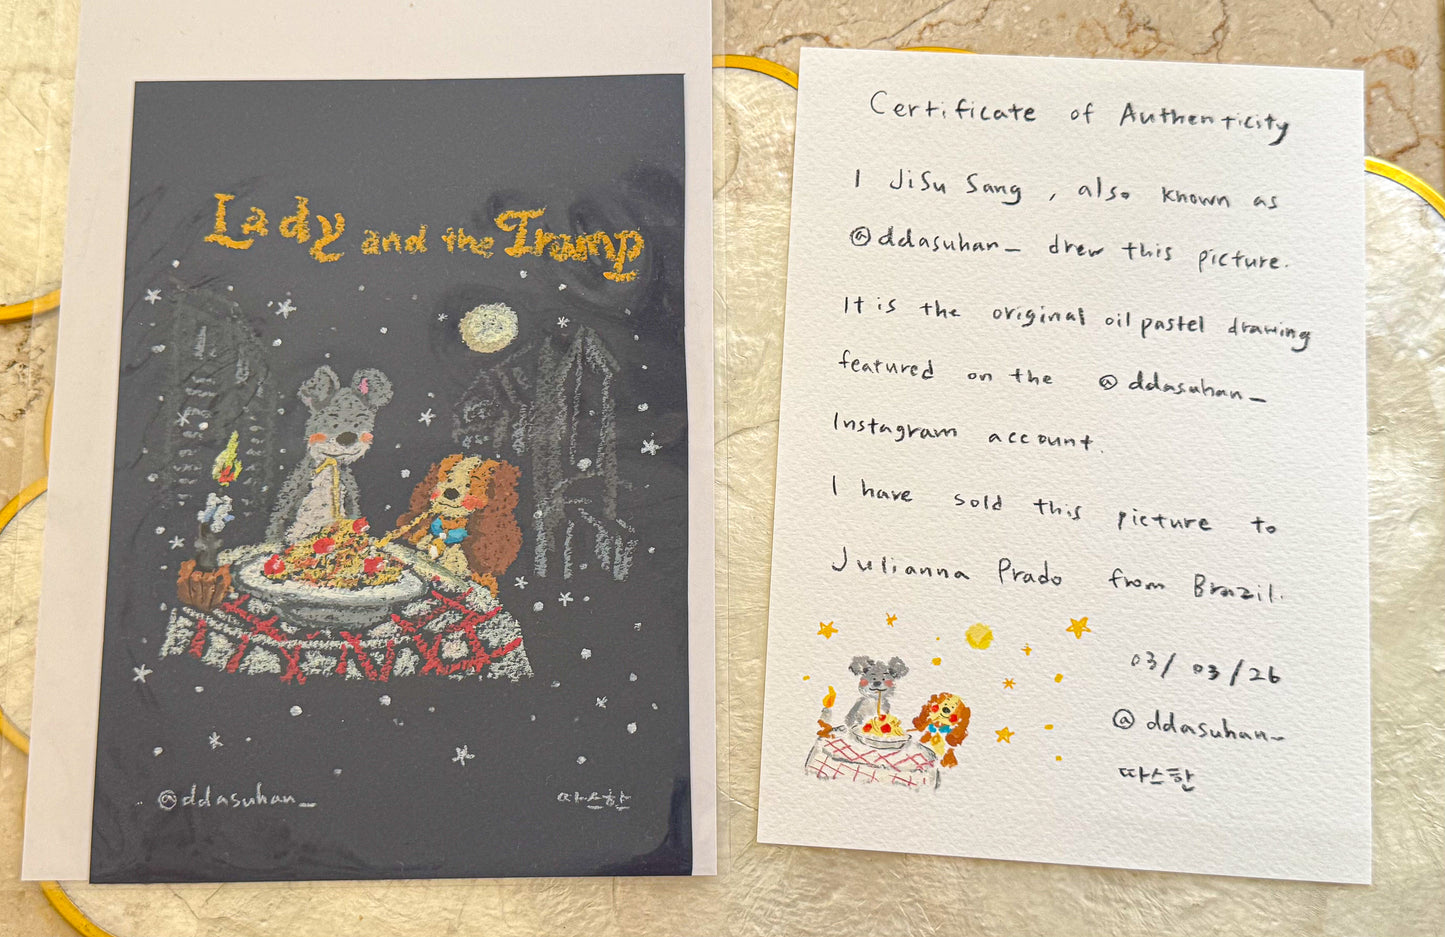 Lady and the Tramp
@ddasuhan_
따스한
Certificate of Authenticity
I JiSu Sang, also known as
@ddasuhan_ drew this picture.
It is the original oil pastel drawing
featured on the @ddasuhan_
Instagram account.
I have sold this picture to
Julianna Prado from Brazil.
03/03/26
@ddasuhan_
따스한